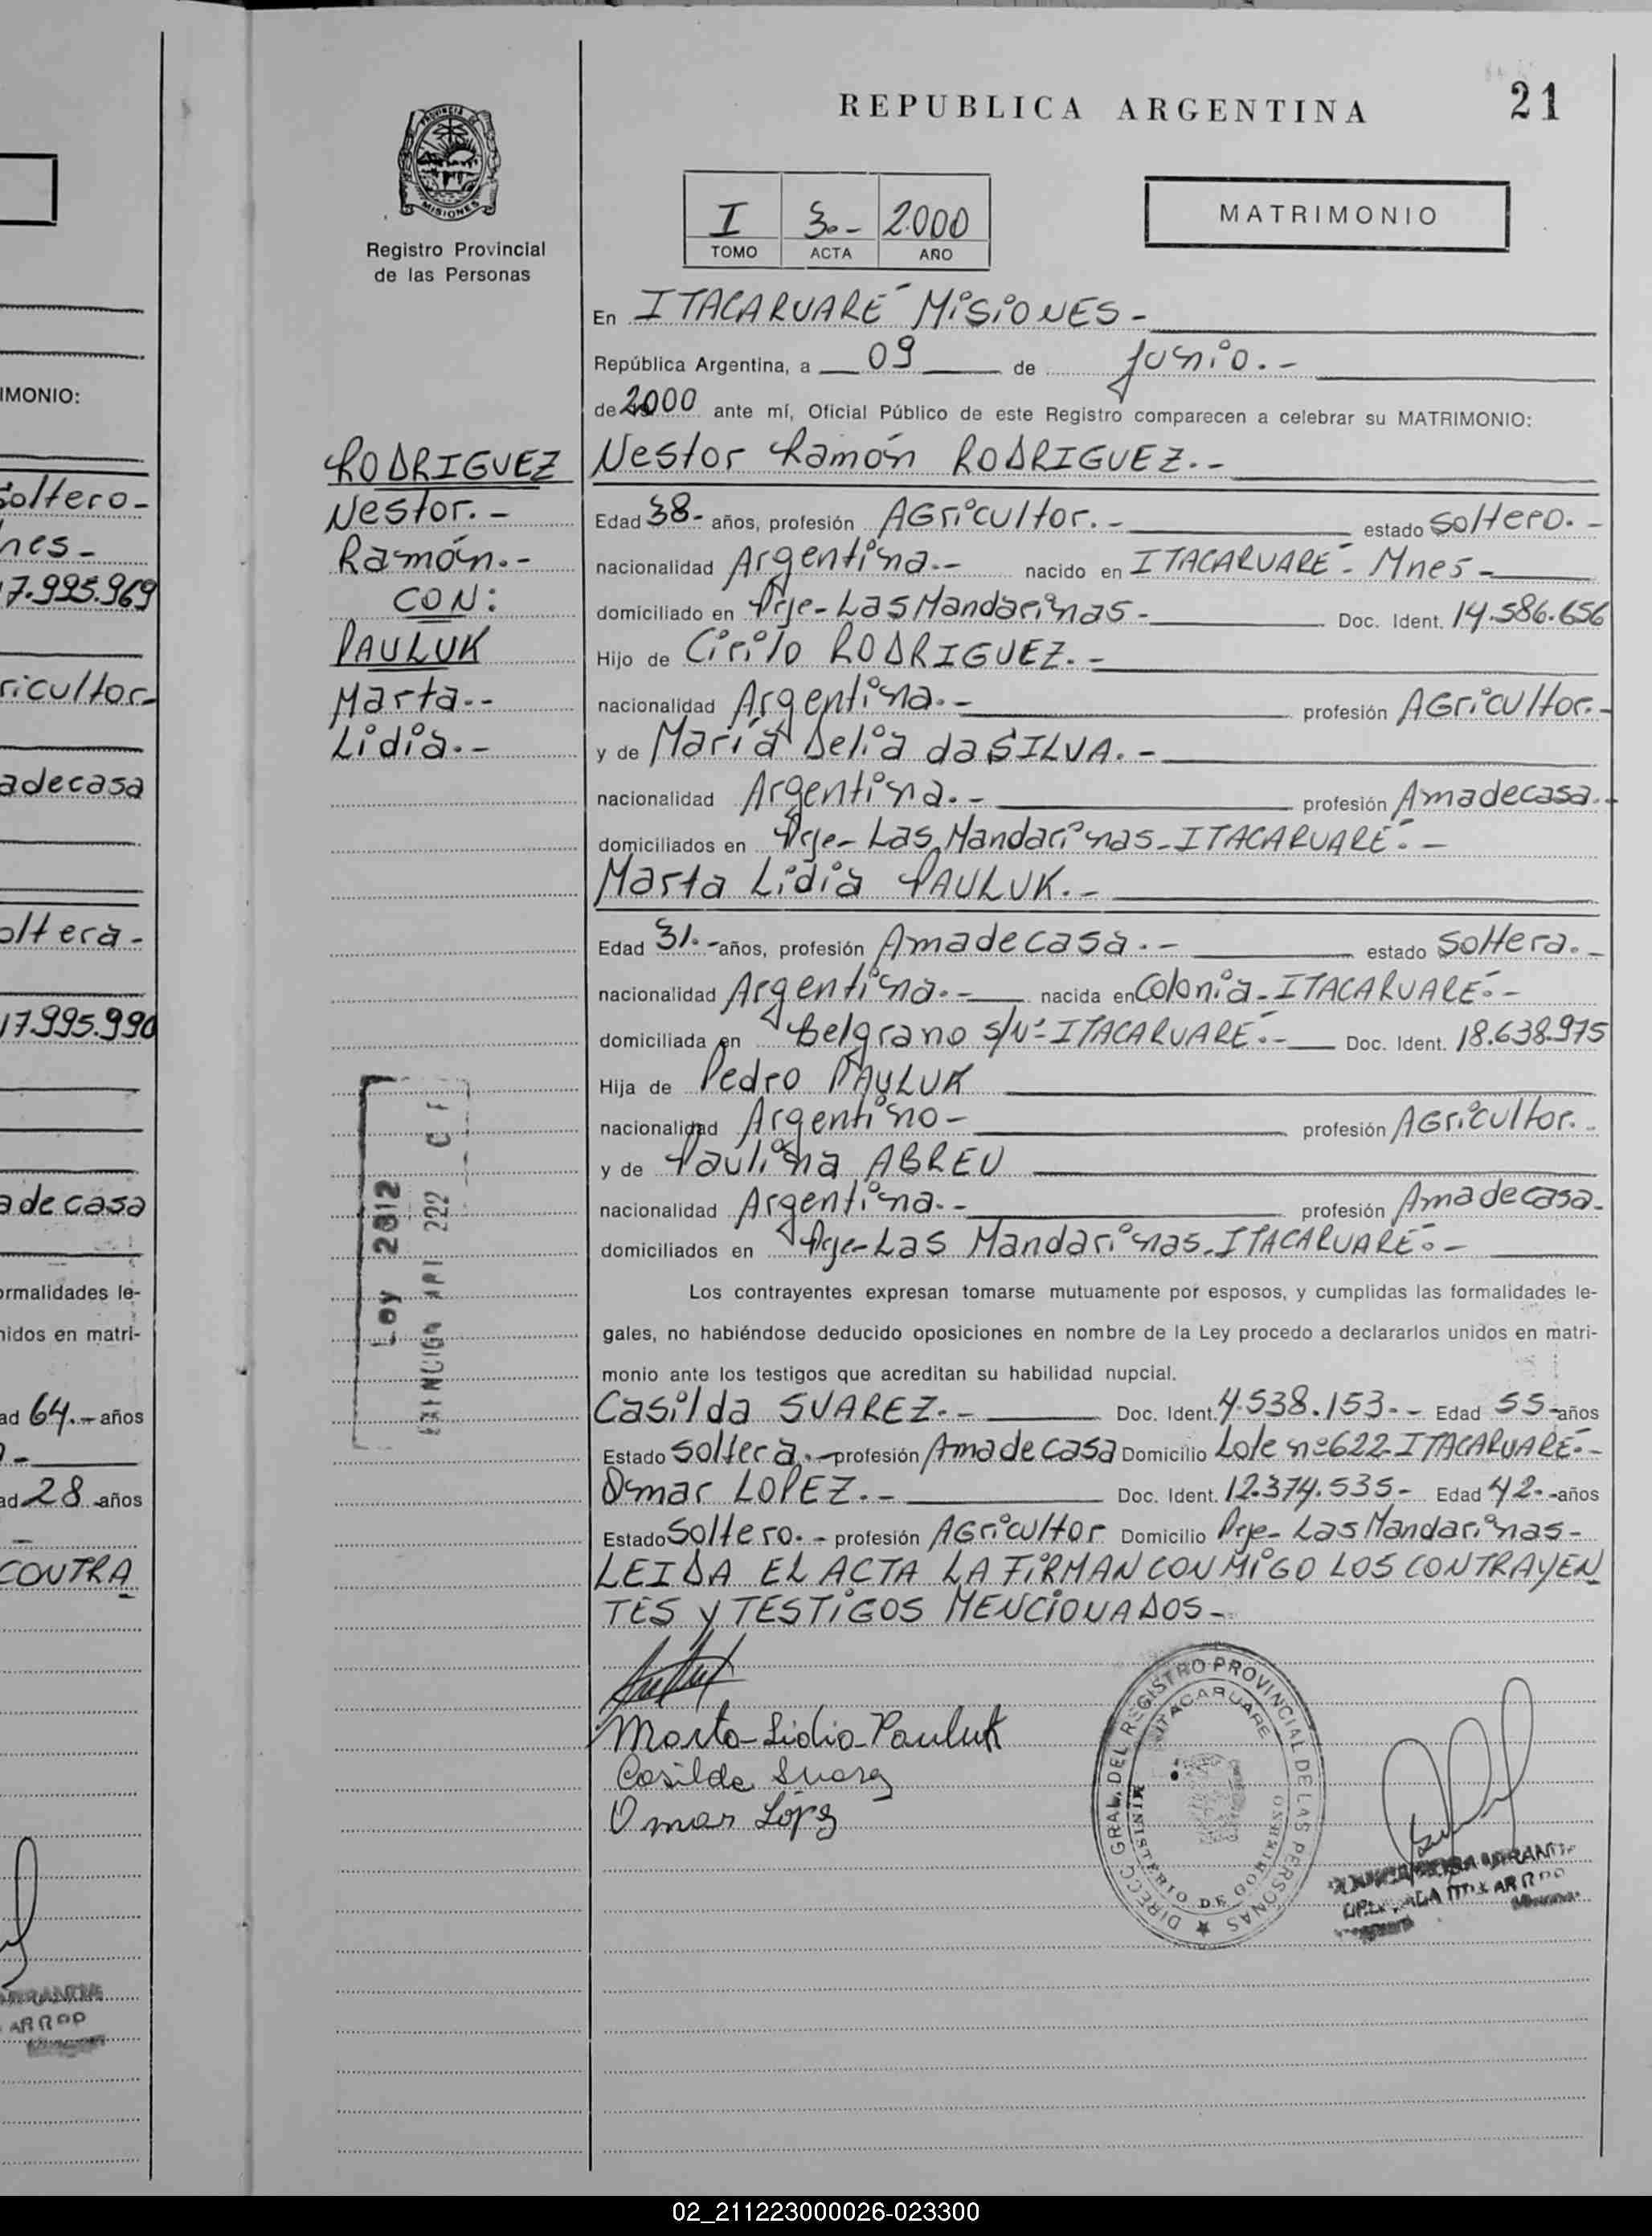 IMONIO:
soltero-
nes-
17.995.969
ricultor-
adecasa
oltera-
17.995.990
adecasa
ormalidades le-
nidos en matri-
ad 64.- años
ad 28 años
COUTRA
ARROD
PROVINCIA DE
MISIONES
Registro Provincial
de las Personas
REPUBLICA ARGENTINA
21
I 3.- 2.000
TOMO ACTA AÑO
MATRIMONIO
En ITACARUARÉ MISIONES-
República Argentina, a 09 de junio.-
de 2000 ante mí, Oficial Público de este Registro comparecen a celebrar su MATRIMONIO:
RODRIGUEZ
Nestor.-
Ramón.-
CON:
PAULUK
Marta.-
Lidia.-
Nestor Ramón RODRIGUEZ.-
Edad 38- años, profesión AGricultor.- estado soltero.-
nacionalidad Argentina.- nacido en ITACARUARÉ- Mnes-
domiciliado en Pje- Las Mandarinas- Doc. Ident. 14.586.656
Hijo de Cirilo RODRIGUEZ.-
nacionalidad Argentina.- profesión AGricultor.-
y de María Delia da SILVA.-
nacionalidad Argentina.- profesión Amadecasa.-
domiciliados en Pje- Las Mandarinas-ITACARUARÉ.-
Marta Lidia PAULUK.-
Edad 31.- años, profesión Amadecasa.- estado soltera.-
nacionalidad Argentina.- nacida en Colonia-ITACARUARÉ.-
domiciliada en Belgrano s/Nº-ITACARUARÉ.- Doc. Ident. 18.638.975
Hija de Pedro PAULUK
nacionalidad Argentino- profesión AGricultor.-
y de Paulina ABREU
nacionalidad Argentina.- profesión Amadecasa-
domiciliados en Pje-Las Mandarinas-ITACARUARÉ.-
Los contrayentes expresan tomarse mutuamente por esposos, y cumplidas las formalidades le-
gales, no habiéndose deducido oposiciones en nombre de la Ley procedo a declararlos unidos en matri-
monio ante los testigos que acreditan su habilidad nupcial.
Casilda SUAREZ.- Doc. Ident. 4.538.153.- Edad 55 años
Estado soltera.- profesión Amadecasa Domicilio Lote nº622-ITACARUARÉ.-
Omar LOPEZ.- Doc. Ident. 12.374.535- Edad 42.- años
Estado Soltero.- profesión AGricultor Domicilio Pje- Las Mandarinas-
LEIDA EL ACTA LA FIRMAN CONMIGO LOS CONTRAYEN
TES y TESTIGOS MENCIONADOS-
Marta Lidia Pauluk
Casilda Suarez
Omar López
DIRECC. GRAL. DEL REGISTRO PROVINCIAL DE LAS PERSONAS
ITACARUARE
MINISTERIO DE GOBIERNO
02_211223000026-023300